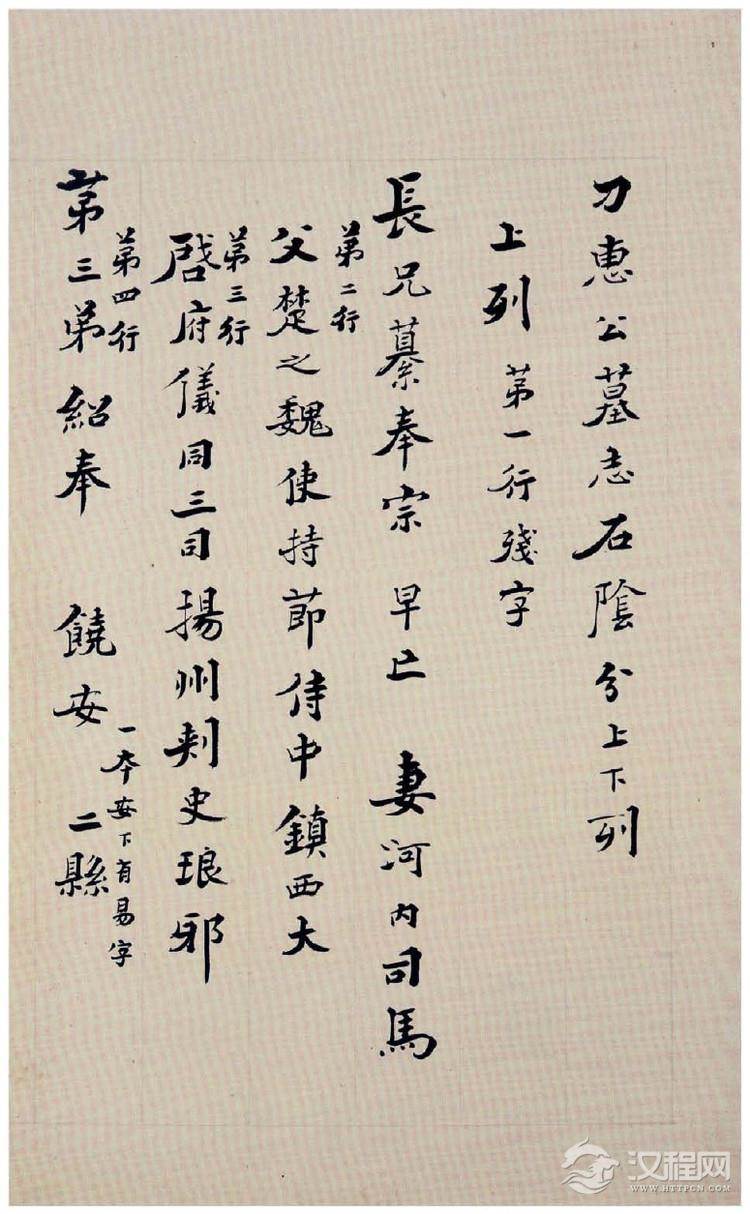 刀惠公墓志石陰分上下列
上列 苐一行殘字
長兄纂奉宗 早亡 妻河內司馬
苐二行
父楚之魏使持節侍中鎮西大
苐三行
啓府儀同三司揚州刺史琅邪
苐四行
苐三弟紹奉 饒安 二縣
一本安下有易字
汉程网
WWW.HTTPCN.COM